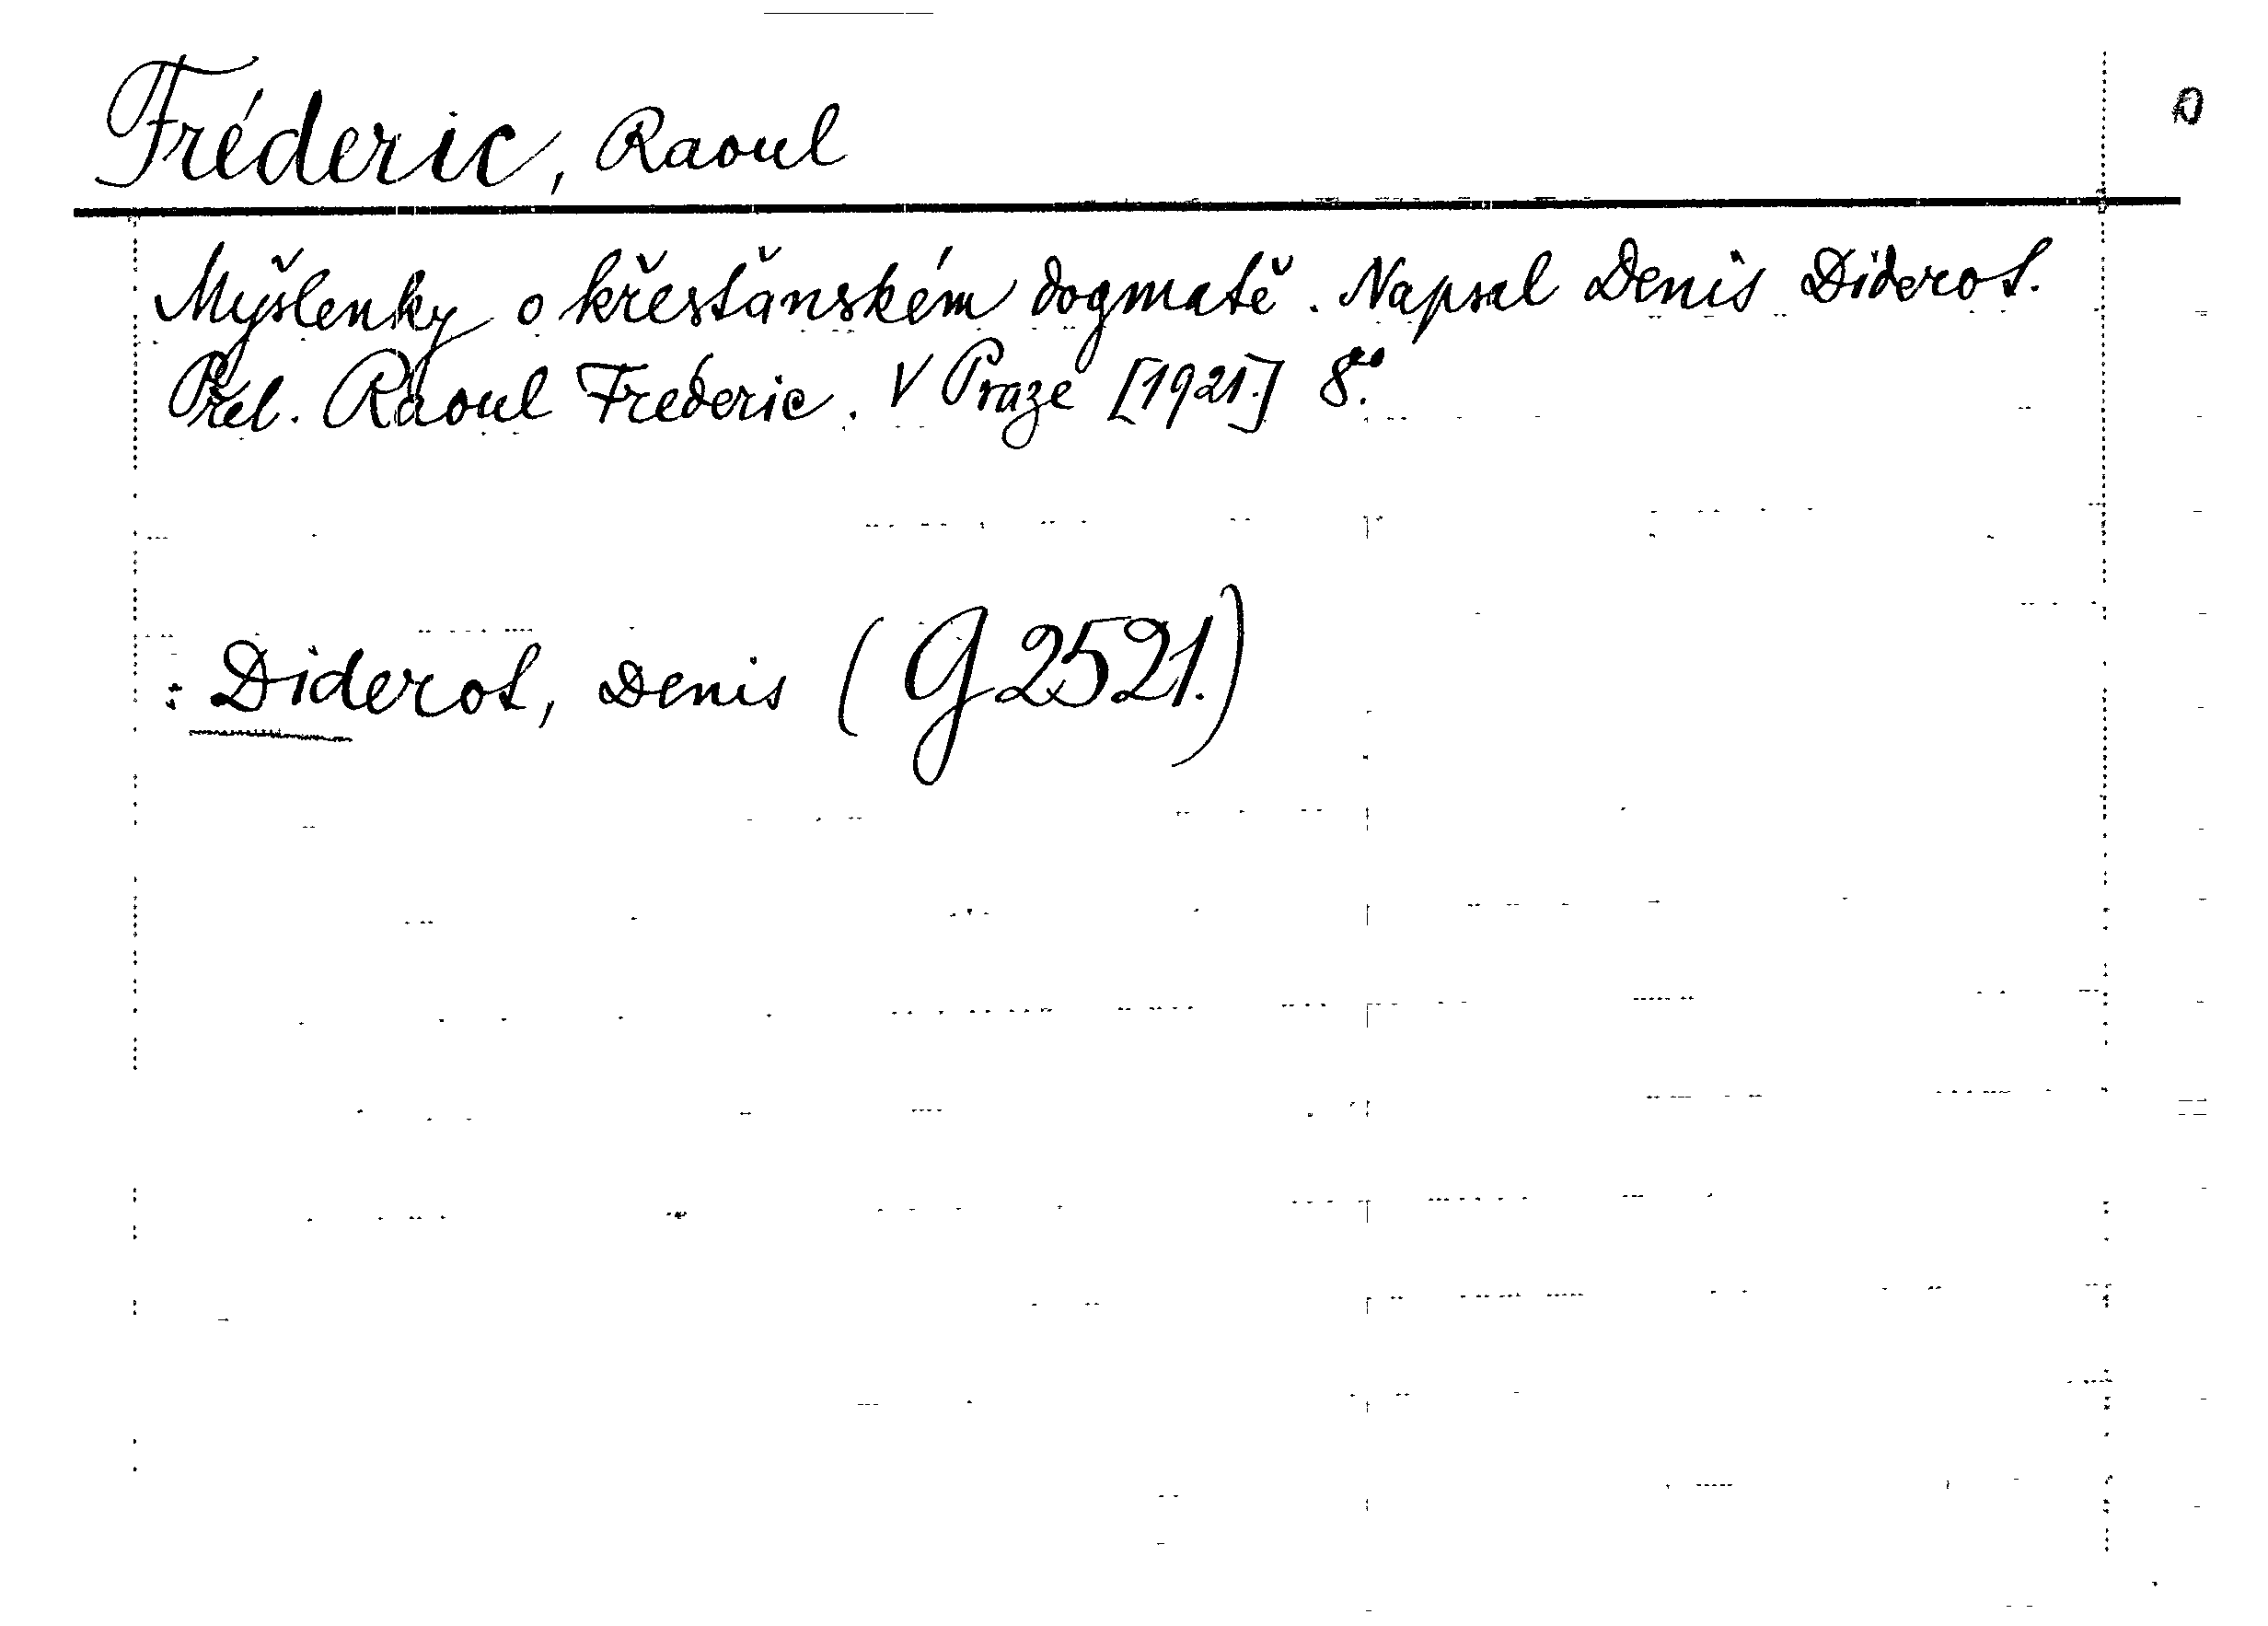 Fréderic, Raoul
Myšlenky o křesťanském dogmatě. Napsal Denis Diderot.
Přel. Raoul Fréderic. V Praze [1921.] 8°.
: Diderot, Denis (G 2521.)